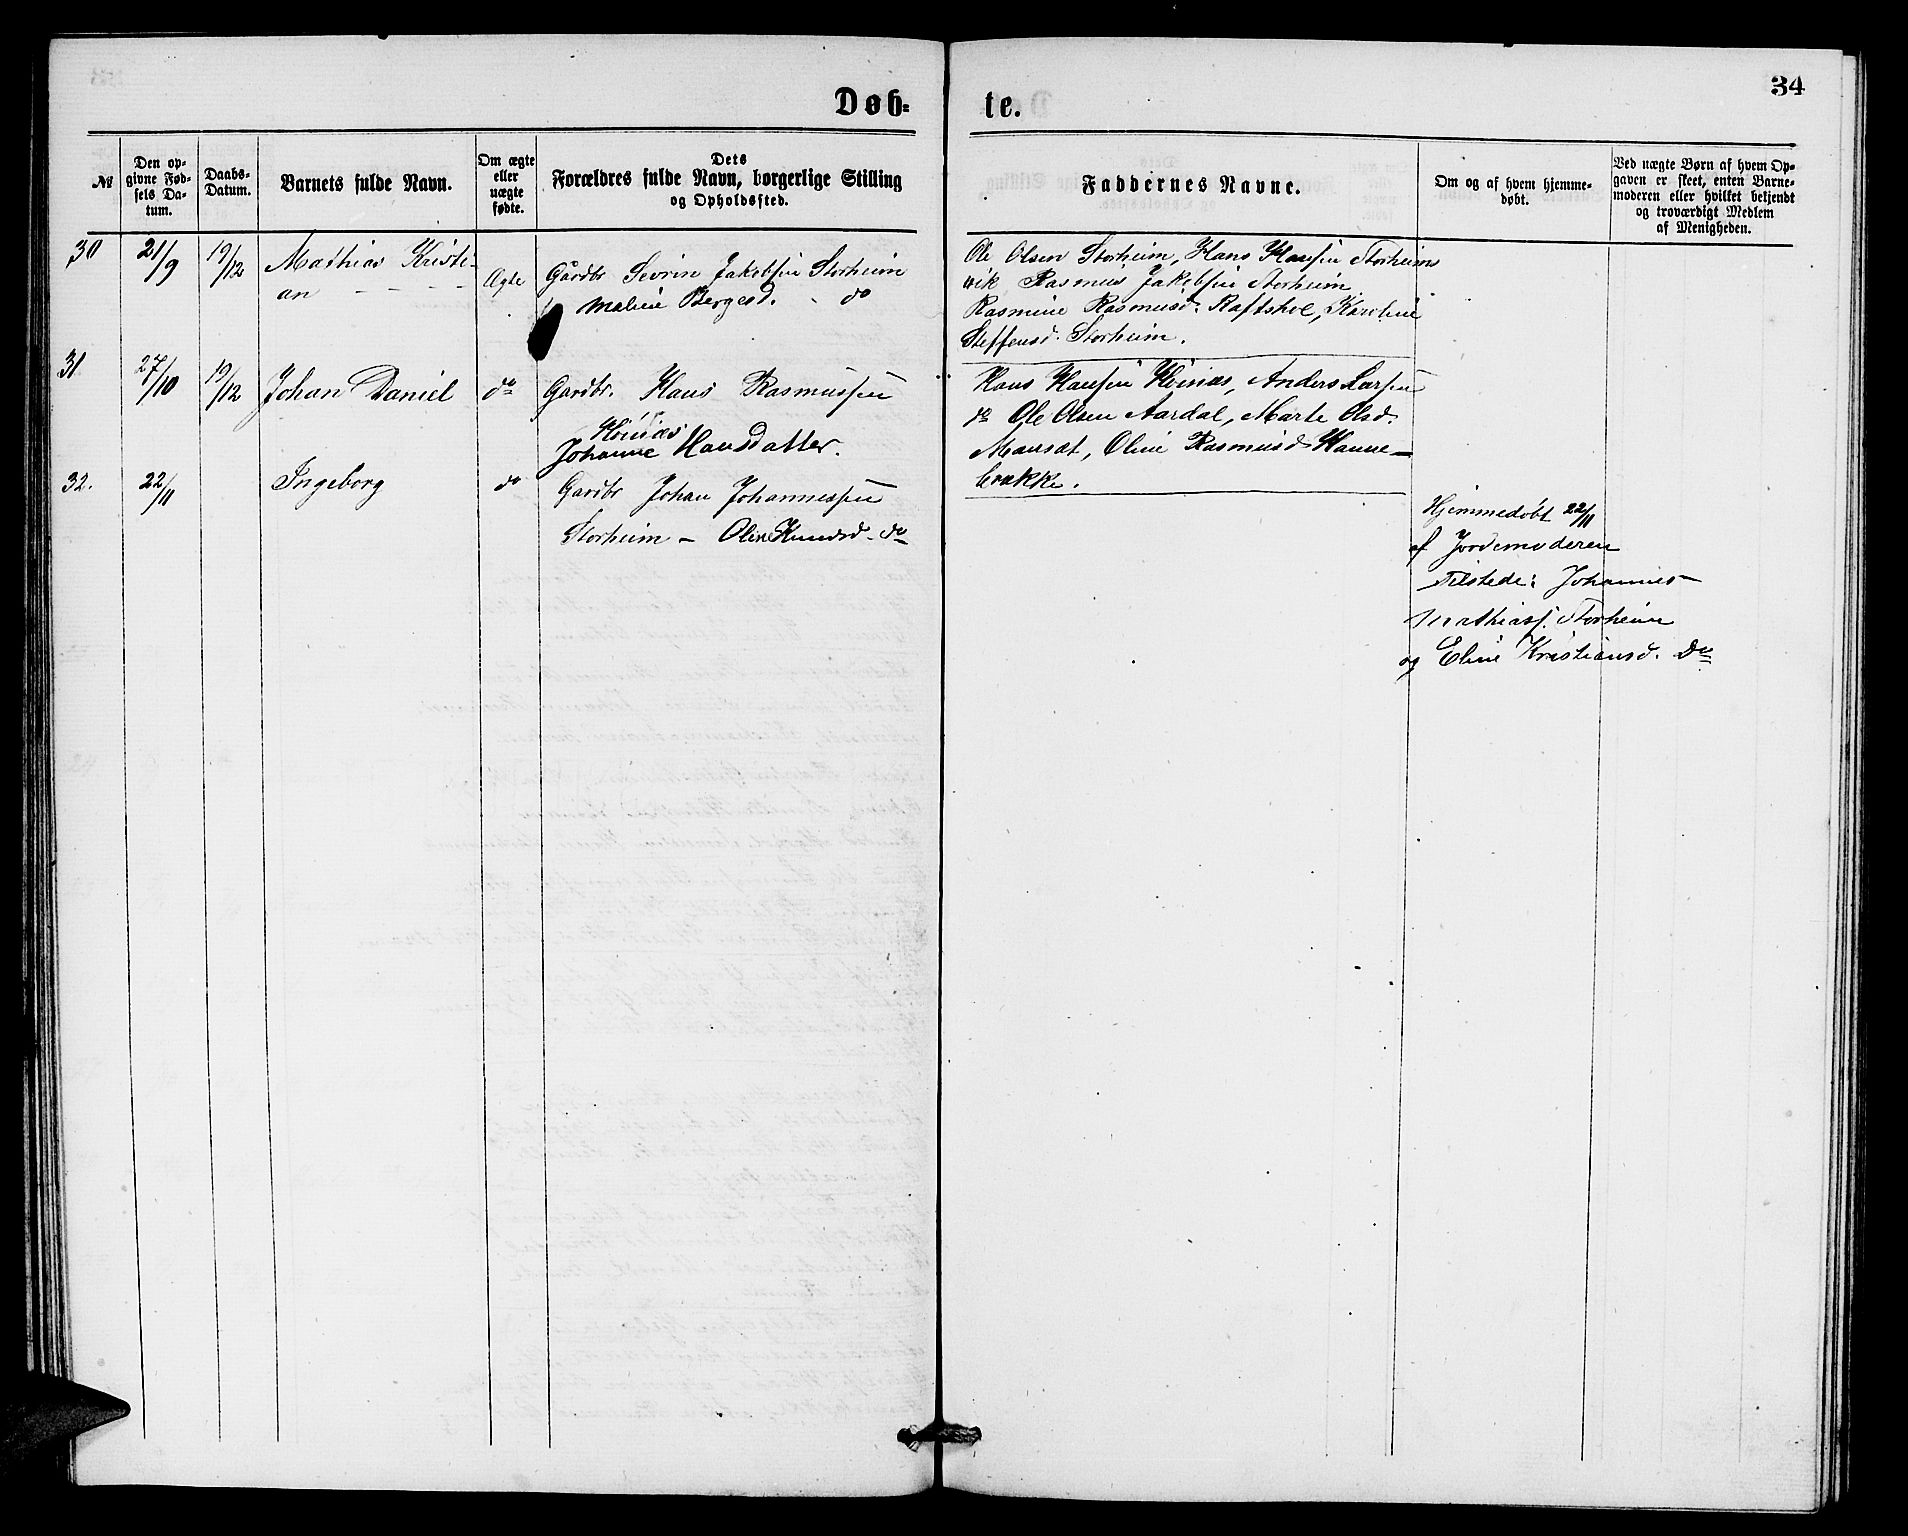 34
Døb-
te.
№
Den op-
givne Fød-
sels Da-
tum.
Daabs-
Datum.
Barnets fulde Navn.
Om ægte
eller
uægte
fødte.
Dets
Forældres fulde Navn, borgerlige Stilling
og Opholdssted.
Faddernes Navne.
Om og af hvem hjemme-
døbt.
Ved uægte Børn af hvem Op-
gaven er skeet, enten Barne-
moderen eller hvilket bekjendt
og troværdigt Medlem
af Menigheden.
30 21/9 19/12 Mathias Kristi-
an
Ægte
Gårdbr Sevrin Jakobsen Storheim
Maline Bergesd. do
Ole Olsen Storheim, Hans Hansen Storheims
vik Rasmus Jakobsen Storheim
Rasmine Rasmusd. Raftshol, Karoline
Steffensd. Storheim.
31 27/10 19/12 Johan Daniel do
Gardbr. Hans Rasmussen
Høinæs
Johanne Hansdatter.
Hans Hansen Høinæs, Anders Larsen
do Ole Olsen Aardal, Marte Olsd.
Mansæt, Oline Rasmusd Hanne-
brække.
32. 22/11 Ingeborg do
Gardbr Johan Johannessen
Storheim - Oline Knudsd. do
Hjemmedøbt 22/11
af Jordemoderen
Tilstede: Johannes
Mathiass. Storheim
og Eline Kristiansd. Do